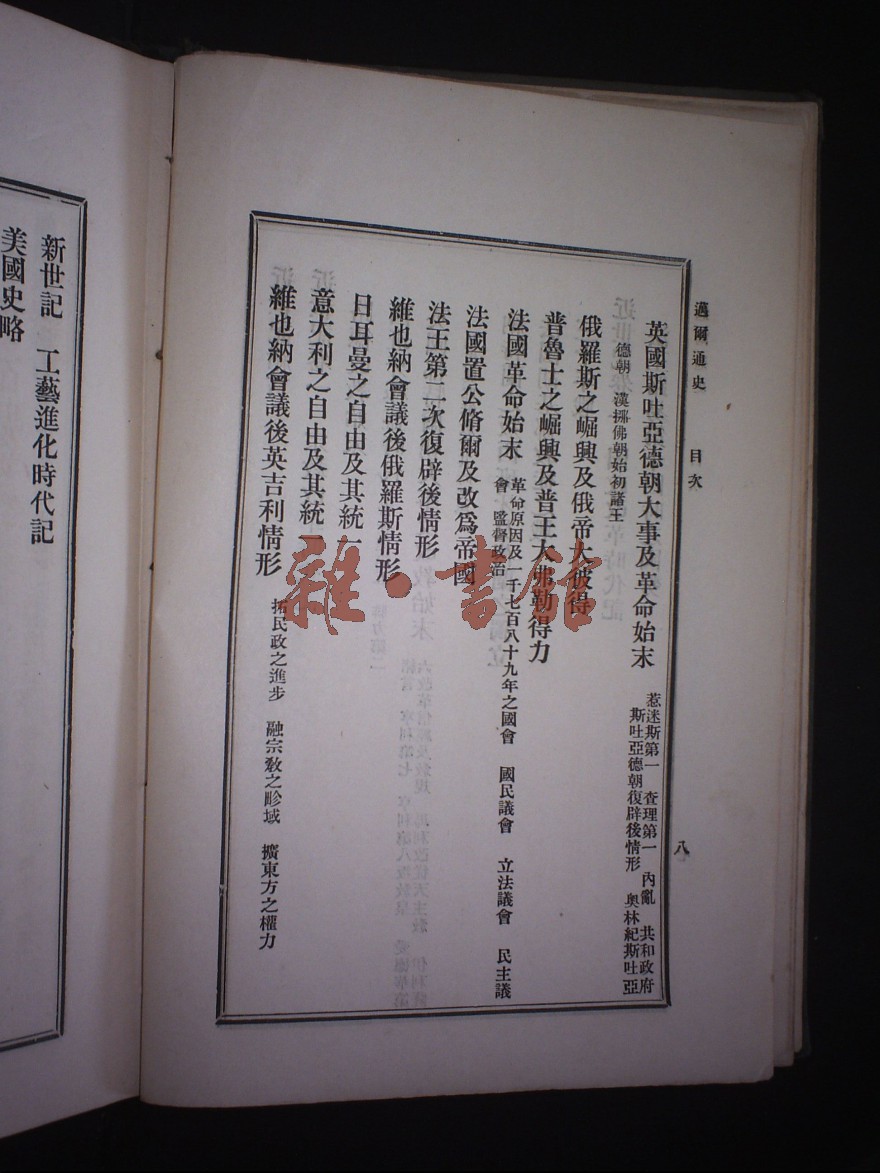 邁爾通史 目次 八
英國斯吐亞德朝大事及革命始末 惹迷斯第一 查理第一 內亂 共和政府 斯吐亞德朝復辟後情形 奧林紀斯吐亞
德朝 漢挪佛朝始初諸王
俄羅斯之崛興及俄帝大彼得
普魯士之崛興及普王大弗勒得力
法國革命始末 革命原因及一千七百八十九年之國會 國民議會 立法議會 民主議會 監督政治
法國置公脩爾及改爲帝國
法王第二次復辟後情形
維也納會議後俄羅斯情形
日耳曼之自由及其統一
意大利之自由及其統一
維也納會議後英吉利情形 拓民政之進步 融宗教之畛域 擴東方之權力
新世記 工藝進化時代記
美國史略
雜·書館